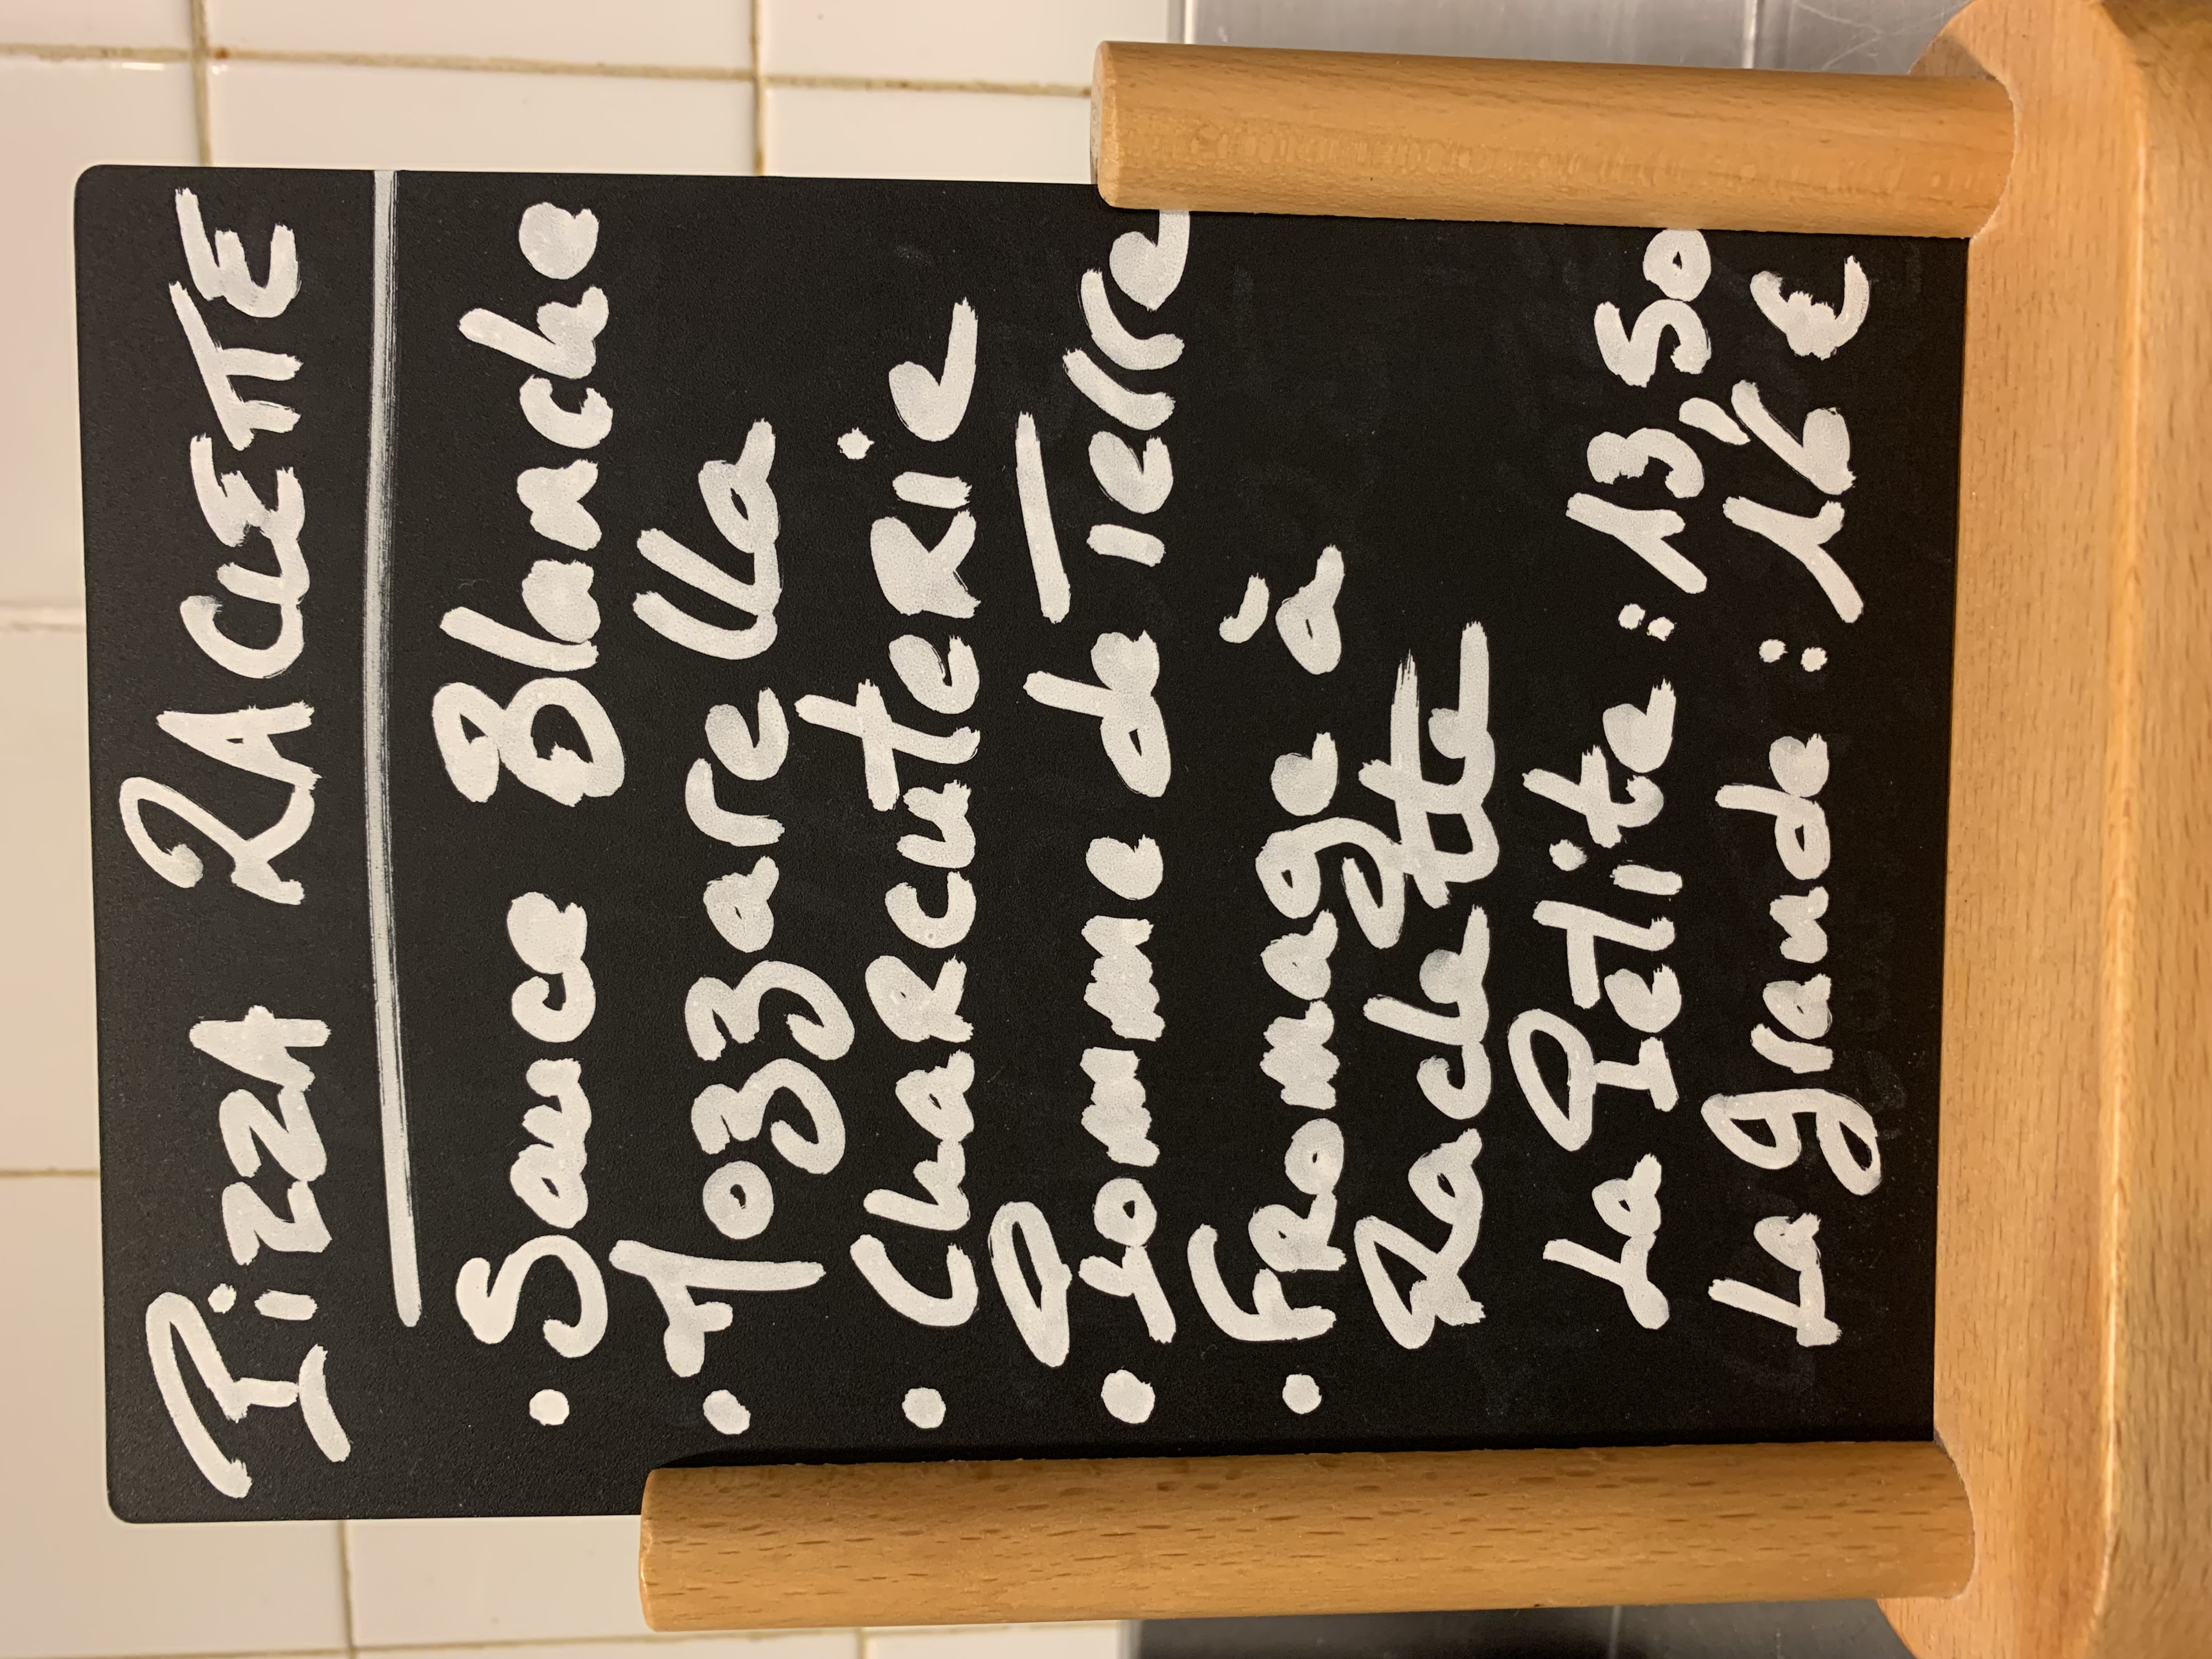 Pizza RACLETTE
• Sauce Blanche
• Mozzarella
• ChaRcuteRie
• Pomme de Terre
• FRomage à
Raclette
La Petite : 13,50
La grande : 16 €